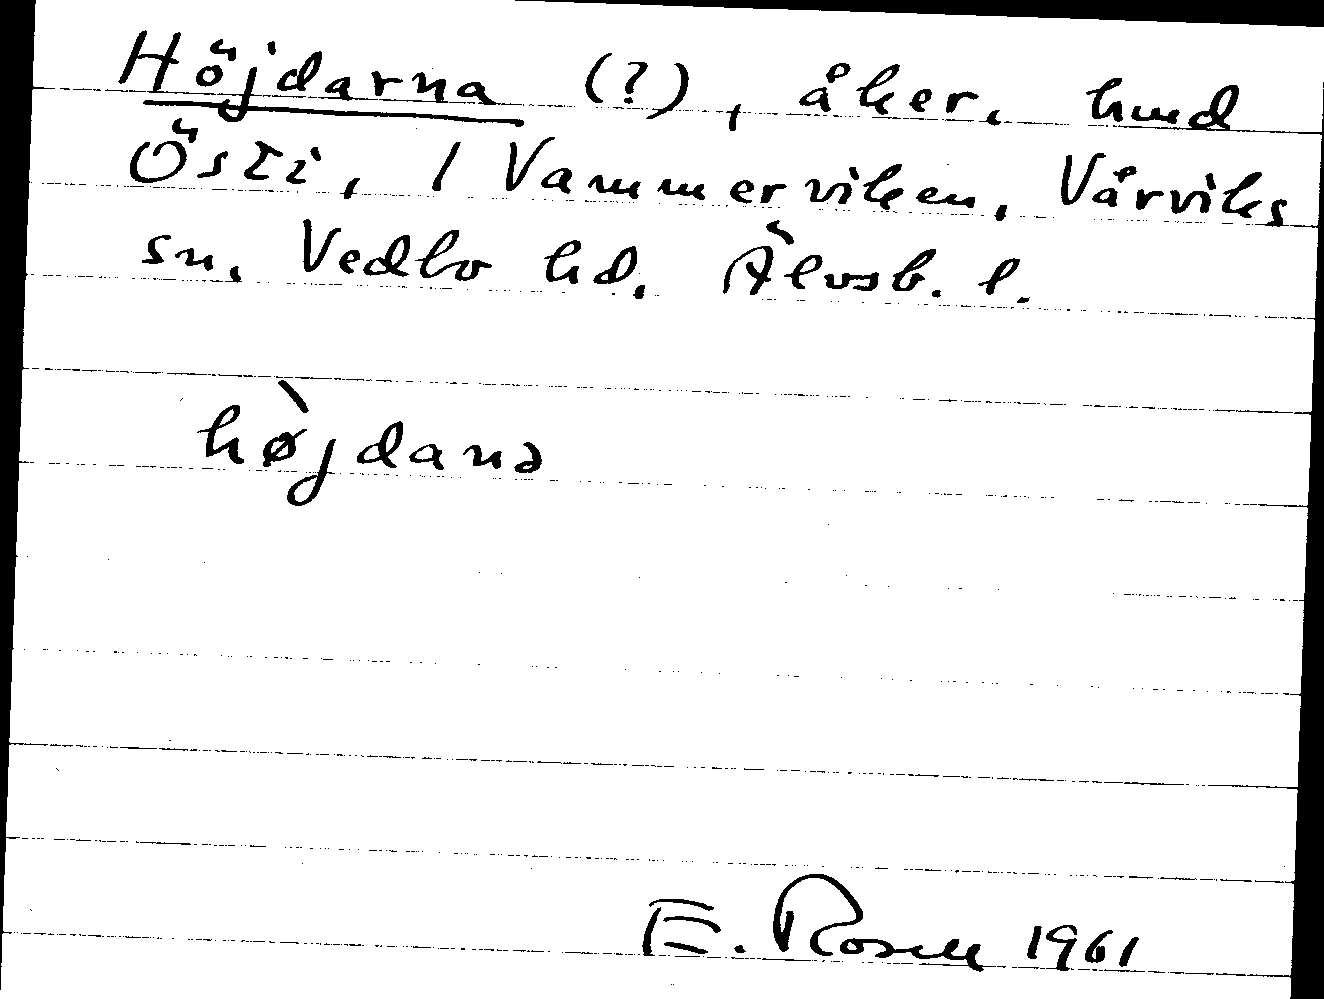 Höjdarna (?), åker, hmd
Östi, 1 Vammerviken, Vårviks
sn. Vedbo hd. Älvsb. l.
hø̀jdanə
E. Rosell 1961